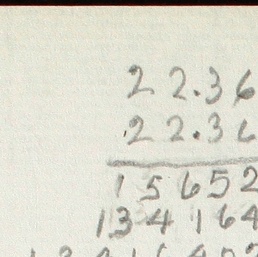 22.36
22.36
15652
134164